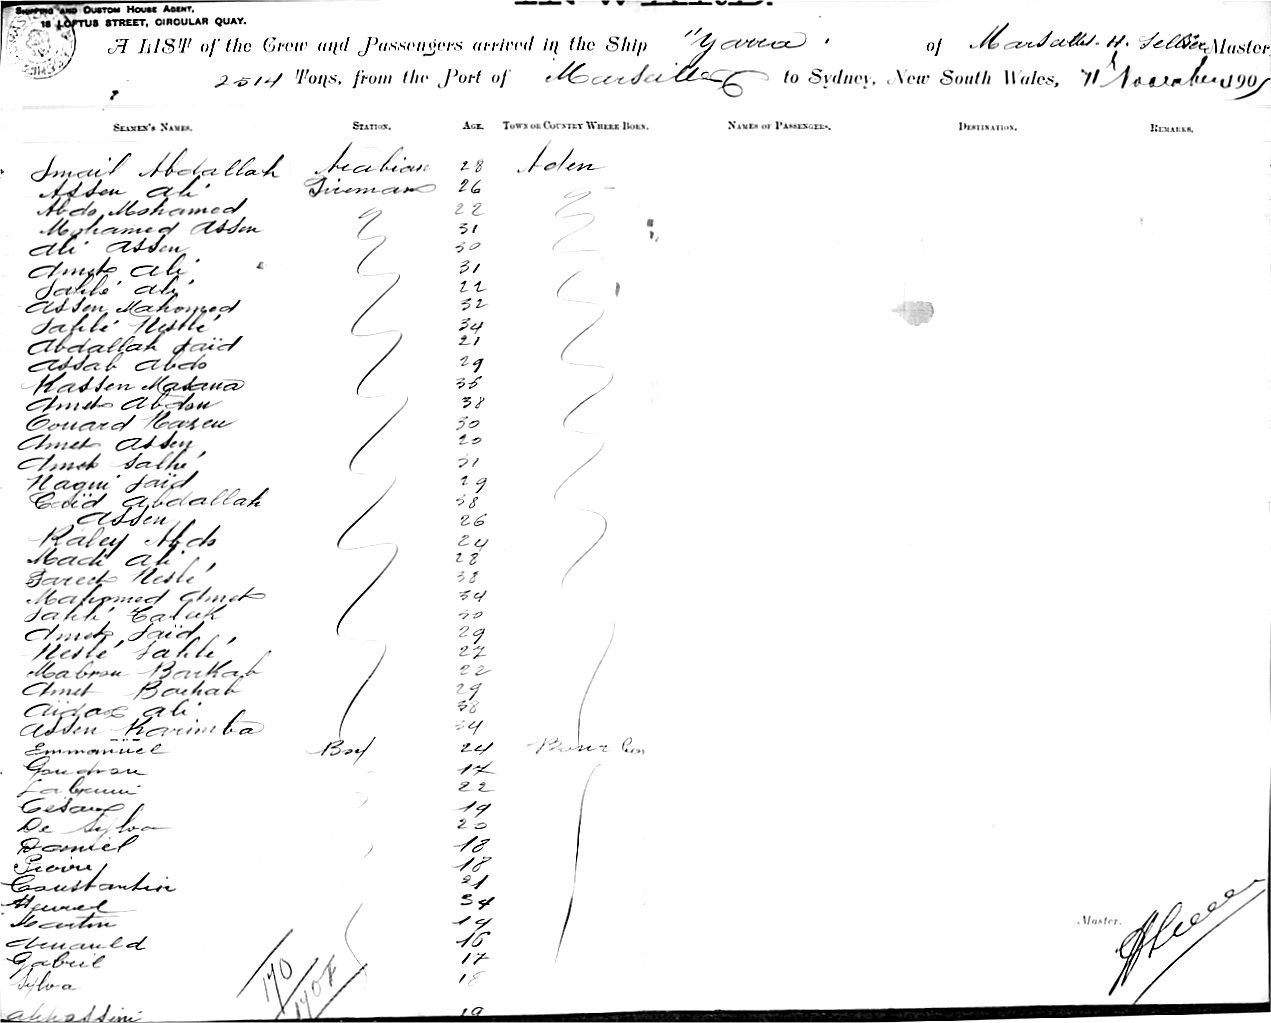 SHIPPING AND CUSTOM HOUSE AGENT,
18 LOFTUS STREET, CIRCULAR QUAY.
A LIST of the Crew and Passengers arrived in the Ship "Yarra" of Marseilles. H. Sellier Master,
2514 Tons, from the Port of Marseilles to Sydney, New South Wales, November 190
SEAMEN'S NAMES. STATION. AGE. TOWN OR COUNTRY WHERE BORN. NAMES OF PASSENGERS. DESTINATION. REMARKS.
Smail Abdallah Arabian 28 Aden
Assen Ali Firemans 26
Abdo Mohamed 22
Mohamed Assen 31
Ali Assen 30
Amet Ali 31
Sahlé Ali 22
Assen Mahomed 32
Sahlé Neslé 34
Abdallah Saïd 21
Assab Abdo 29
Kassen Masana 35
Amet Abdou 38
Couard Nazen 30
Amet Assen 20
Amet Salhé 31
Nagui Saïd 29
Caïd Abdallah 38
Assen 26
Kaley Abdo 24
Madi Ali 28
Fareck Neslé 38
Mahomed Amet 34
Sahlé 30
Amet Saïd 29
Neslé Sahlé 27
Mabrou Barkab 22
Amet Bouhab 29
Aïdas Ali 38
Assen Karimba 34
Emmanüel Boy 24
Goudrou 17
22
Cesar 19
De Sylva 20
Daniel 18
Pierre 18
Constantin 21
34
Martin 19
Arnauld 16
Gabriel 17
Sylva 18
19
Master.
170